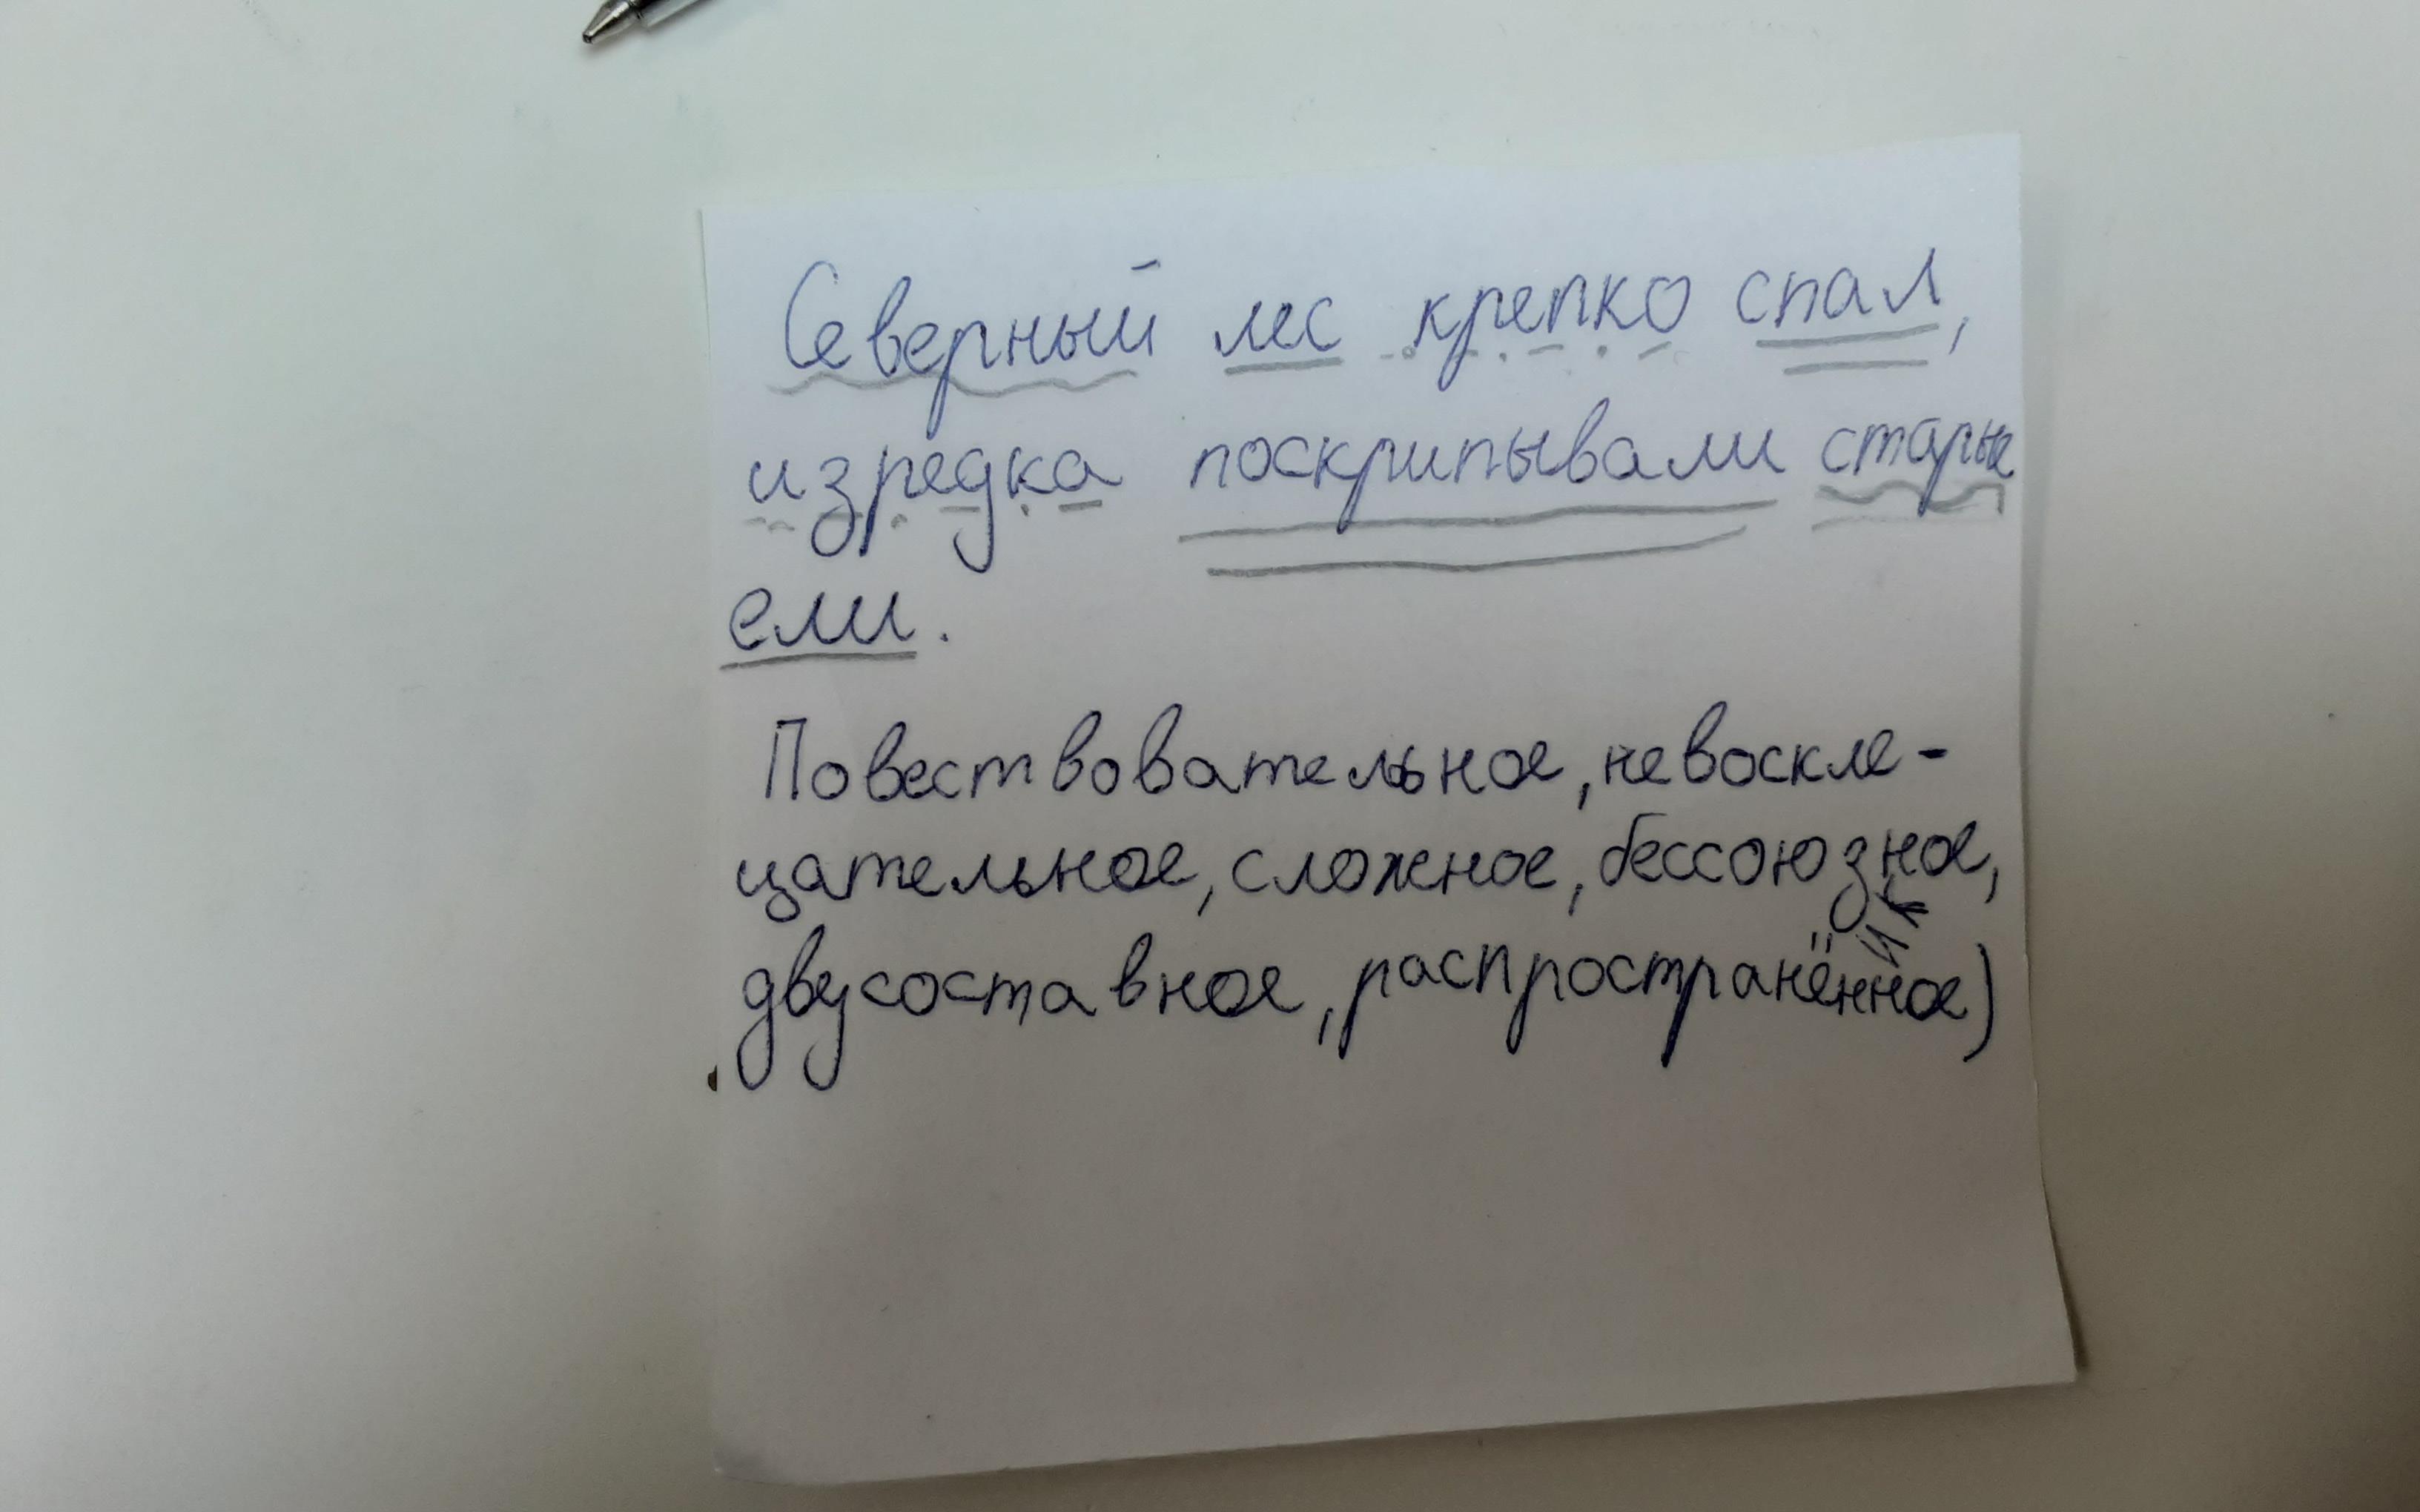 Северный лес крепко спал,
изредка поскрипывали старые
ели.
Повествовательное, невоскле-
цательное, сложное, бессоюзное,
двусоставное, распространённое)